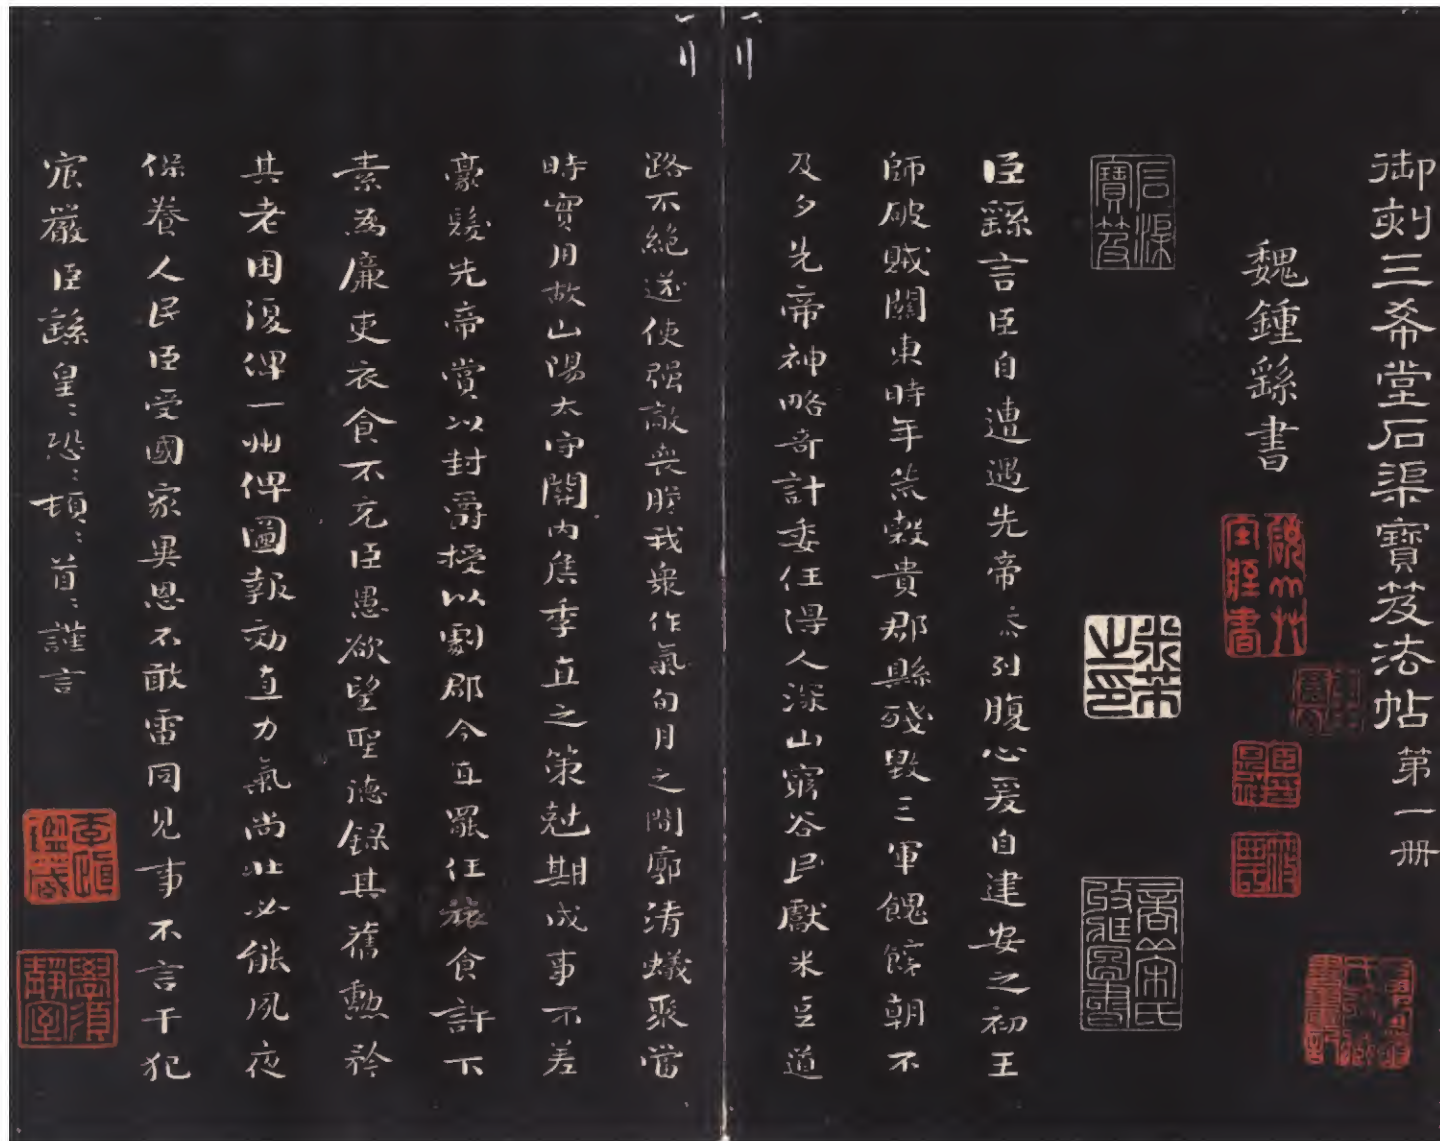 御刻三希堂石渠寶笈法帖第一冊
魏鍾繇書
石渠寶笈
米芾之印
臣繇言臣自遭遇先帝忝列腹心爰自建安之初王
師破賊關東時年荒穀貴郡縣殘毀三軍餽饟朝不
及夕先帝神略奇計委任得人深山窮谷民獻米豆道
路不絕遂使强敵喪膽我衆作氣旬月之間廓清蟻聚當
時實用故山陽太守關內侯季直之策尅期成事不差
豪髮先帝賞以封爵授以劇郡今直罷任旅食許下
素爲廉吏衣食不充臣愚欲望聖德錄其舊勳矜
其老困復俾一州俾圖報効直力氣尚壯必能夙夜
保養人民臣受國家異恩不敢雷同見事不言干犯
宸嚴臣繇皇〻恐〻頓〻首〻謹言
學須靜室